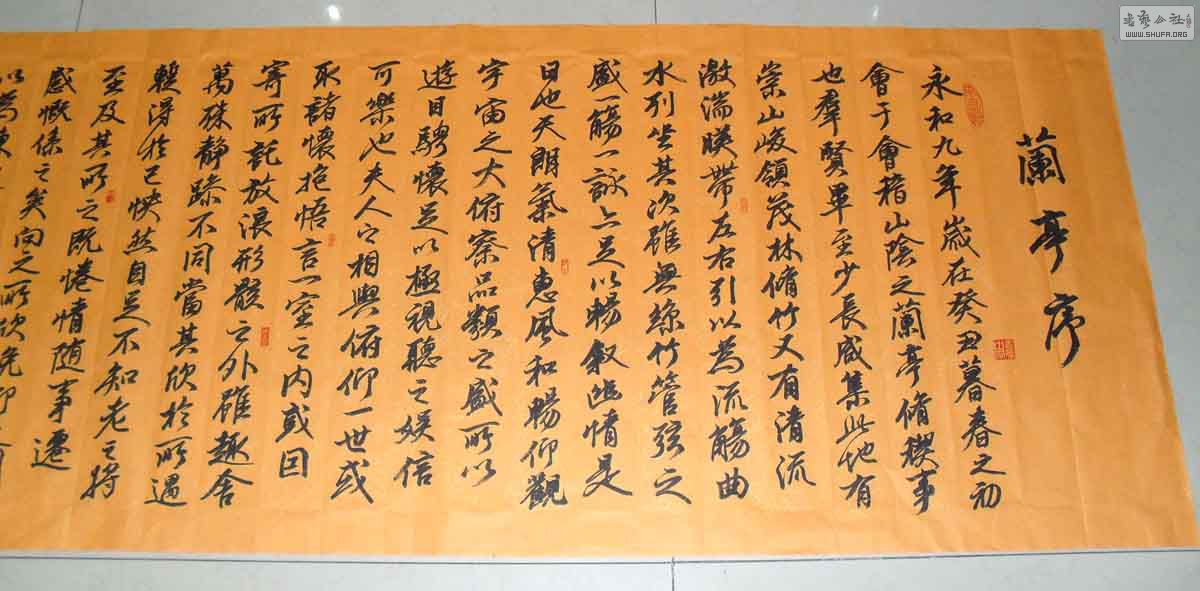 蘭亭序
永和九年歲在癸丑暮春之初
會于會稽山陰之蘭亭脩稧事
也羣賢畢至少長咸集此地有
崇山峻領茂林脩竹又有清流
激湍暎帶左右引以為流觴曲
水列坐其次雖無絲竹管弦之
盛一觴一詠亦足以暢敘幽情是
日也天朗氣清惠風和暢仰觀
宇宙之大俯察品類之盛所以
遊目騁懷足以極視聽之娛信
可樂也夫人之相與俯仰一世或
取諸懷抱悟言一室之内或因
寄所託放浪形骸之外雖趣舍
萬殊静躁不同當其欣於所遇
暫得於己怏然自足不知老之將
至及其所之既惓情随事遷
感慨係之矣向之所欣俛仰
以為陳
书艺公社
WWW.SHUFA.ORG